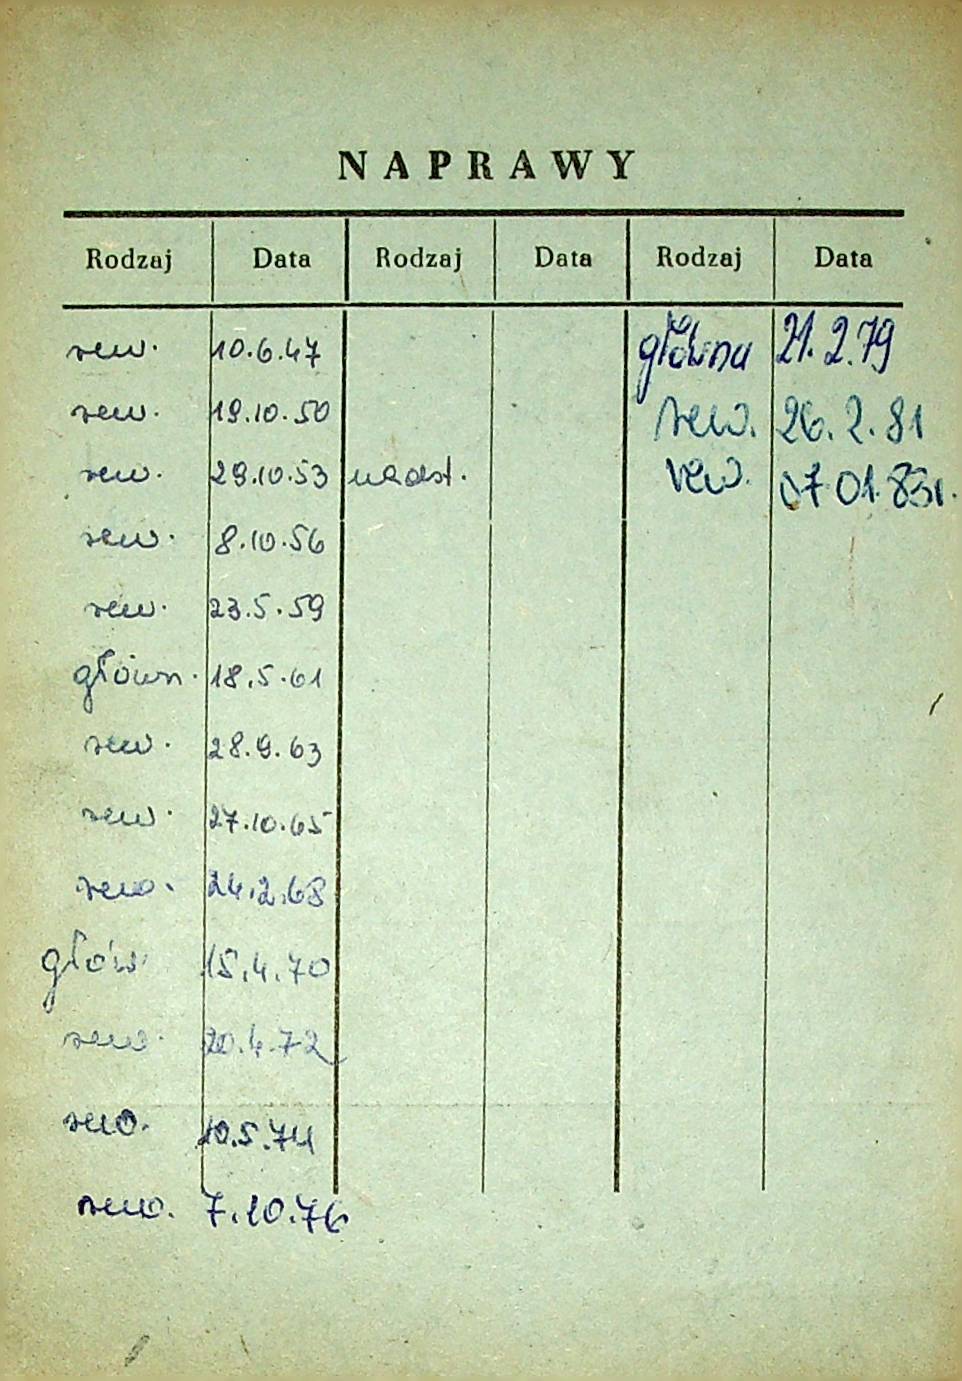 NAPRAWY
Rodzaj Data Rodzaj Data Rodzaj Data
rew. 10.6.47 główna 21.2.79
rew. 19.10.50 rew. 26.2.81
rew. 29.10.53 nadst. rew. 07.01.83r.
rew. 8.10.56
rew. 23.5.59
główn. 18.5.61
rew. 28.9.63
rew. 27.10.65
rew. 24.2.68
głów 15.4.70
rew. 20.4.72
rew. 10.5.74
rew. 7.10.76